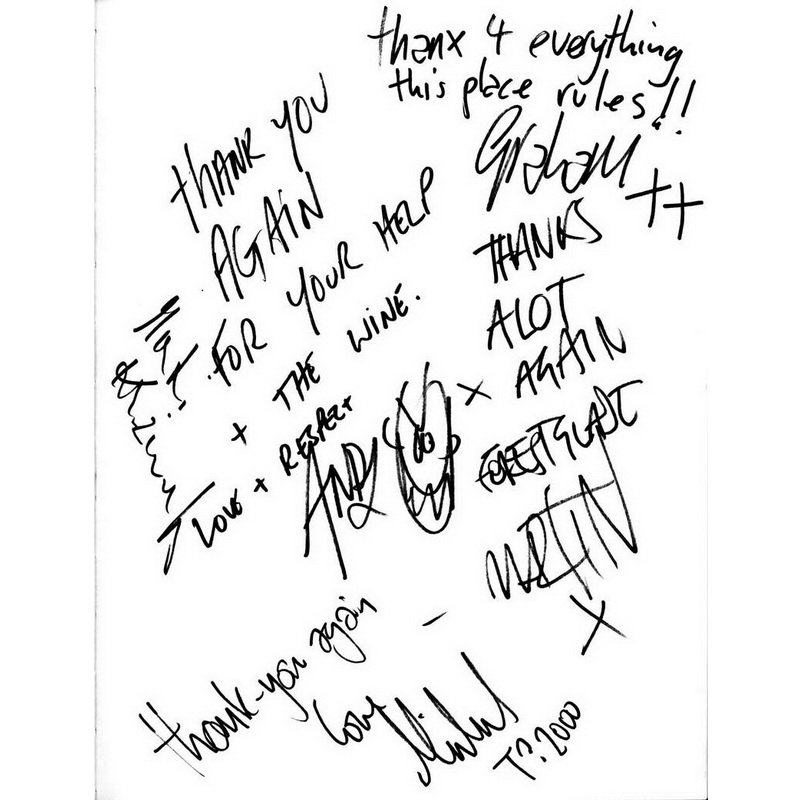 thanx 4 everything
this place rules!!
Graham
++
THANK YOU
AGAIN
FOR YOUR HELP
+ THE WINE.
LOVE + RESPECT
ANDY
x
THANKS
ALOT
AGAIN
MARTIN
X
thank-you again
love
Michael
T?:2000